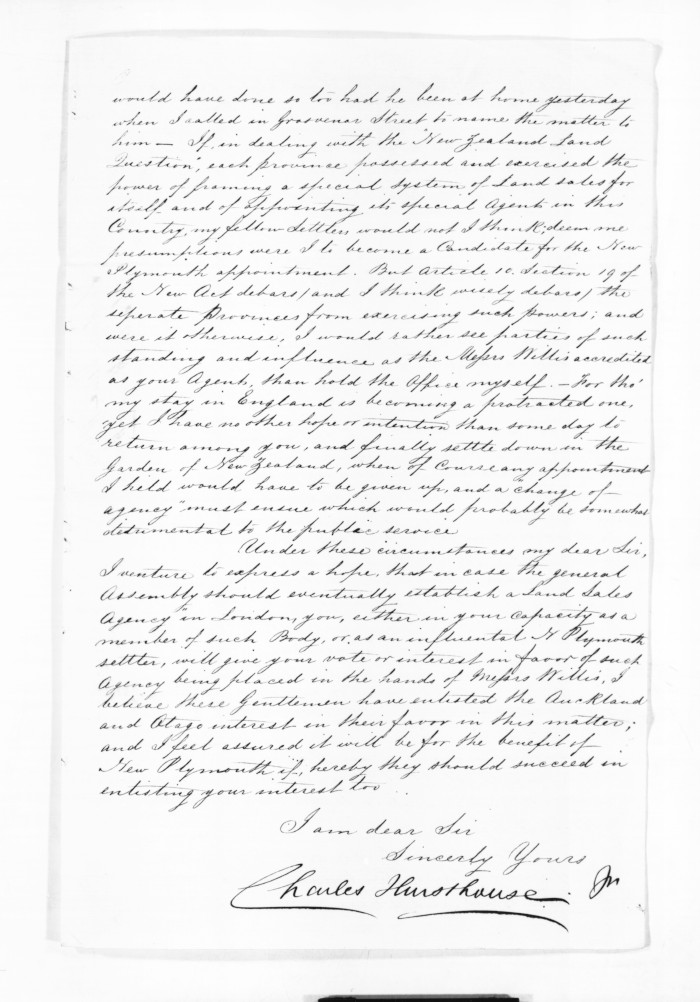 would have done so too had he been at home yesterday
when I called in Grosvenar Street to name the matter to
him — If, in dealing with the "New Zealand Land
Question", each province possessed and exercised the
power of framing a special system of Land sales for
itself and of appointing its special Agent in this
Country, my fellow Settlers, would not I think, deem me
presumptions were I to become a Candidate for the New
Plymouth appointment. But Article 10. Section 19 of
the New Act debars (and I think wisely debars) the
seperate Provinces from exercising such powers; and
were it otherwise, I would rather see parties of such
standing and influence as the Messrs Willis accredited
as your Agent, than hold the Office myself. — For tho'
my stay in England is becoming a protracted one,
yet I have no other hope or intention than some day to
return among you, and finally settle down in the
Garden of New Zealand, when of Course any appointment
I held would have to be given up, and a "change of
agency" must ensue which would probably be somewhat
detrimental to the public service
Under these circumstances my dear Sir,
I venture to express a hope, that in case the general
Assembly should eventually establish a "Land Sales
Agency" in London, you, either in your capacity as a
member of such Body, or, as an influental N Plymouth
settler, will give your vote or interest in favor of such
Agency being placed in the hands of Messrs Willis, I
believe these Gentlemen have enlisted the Auckland
and Otago interest in their favor in this matter;
and I feel assured it will be for the benefit of
New Plymouth if, hereby they should succeed in
enlisting your interest too.
I am dear Sir
Sincerly Yours
Charles Hursthouse. Jn